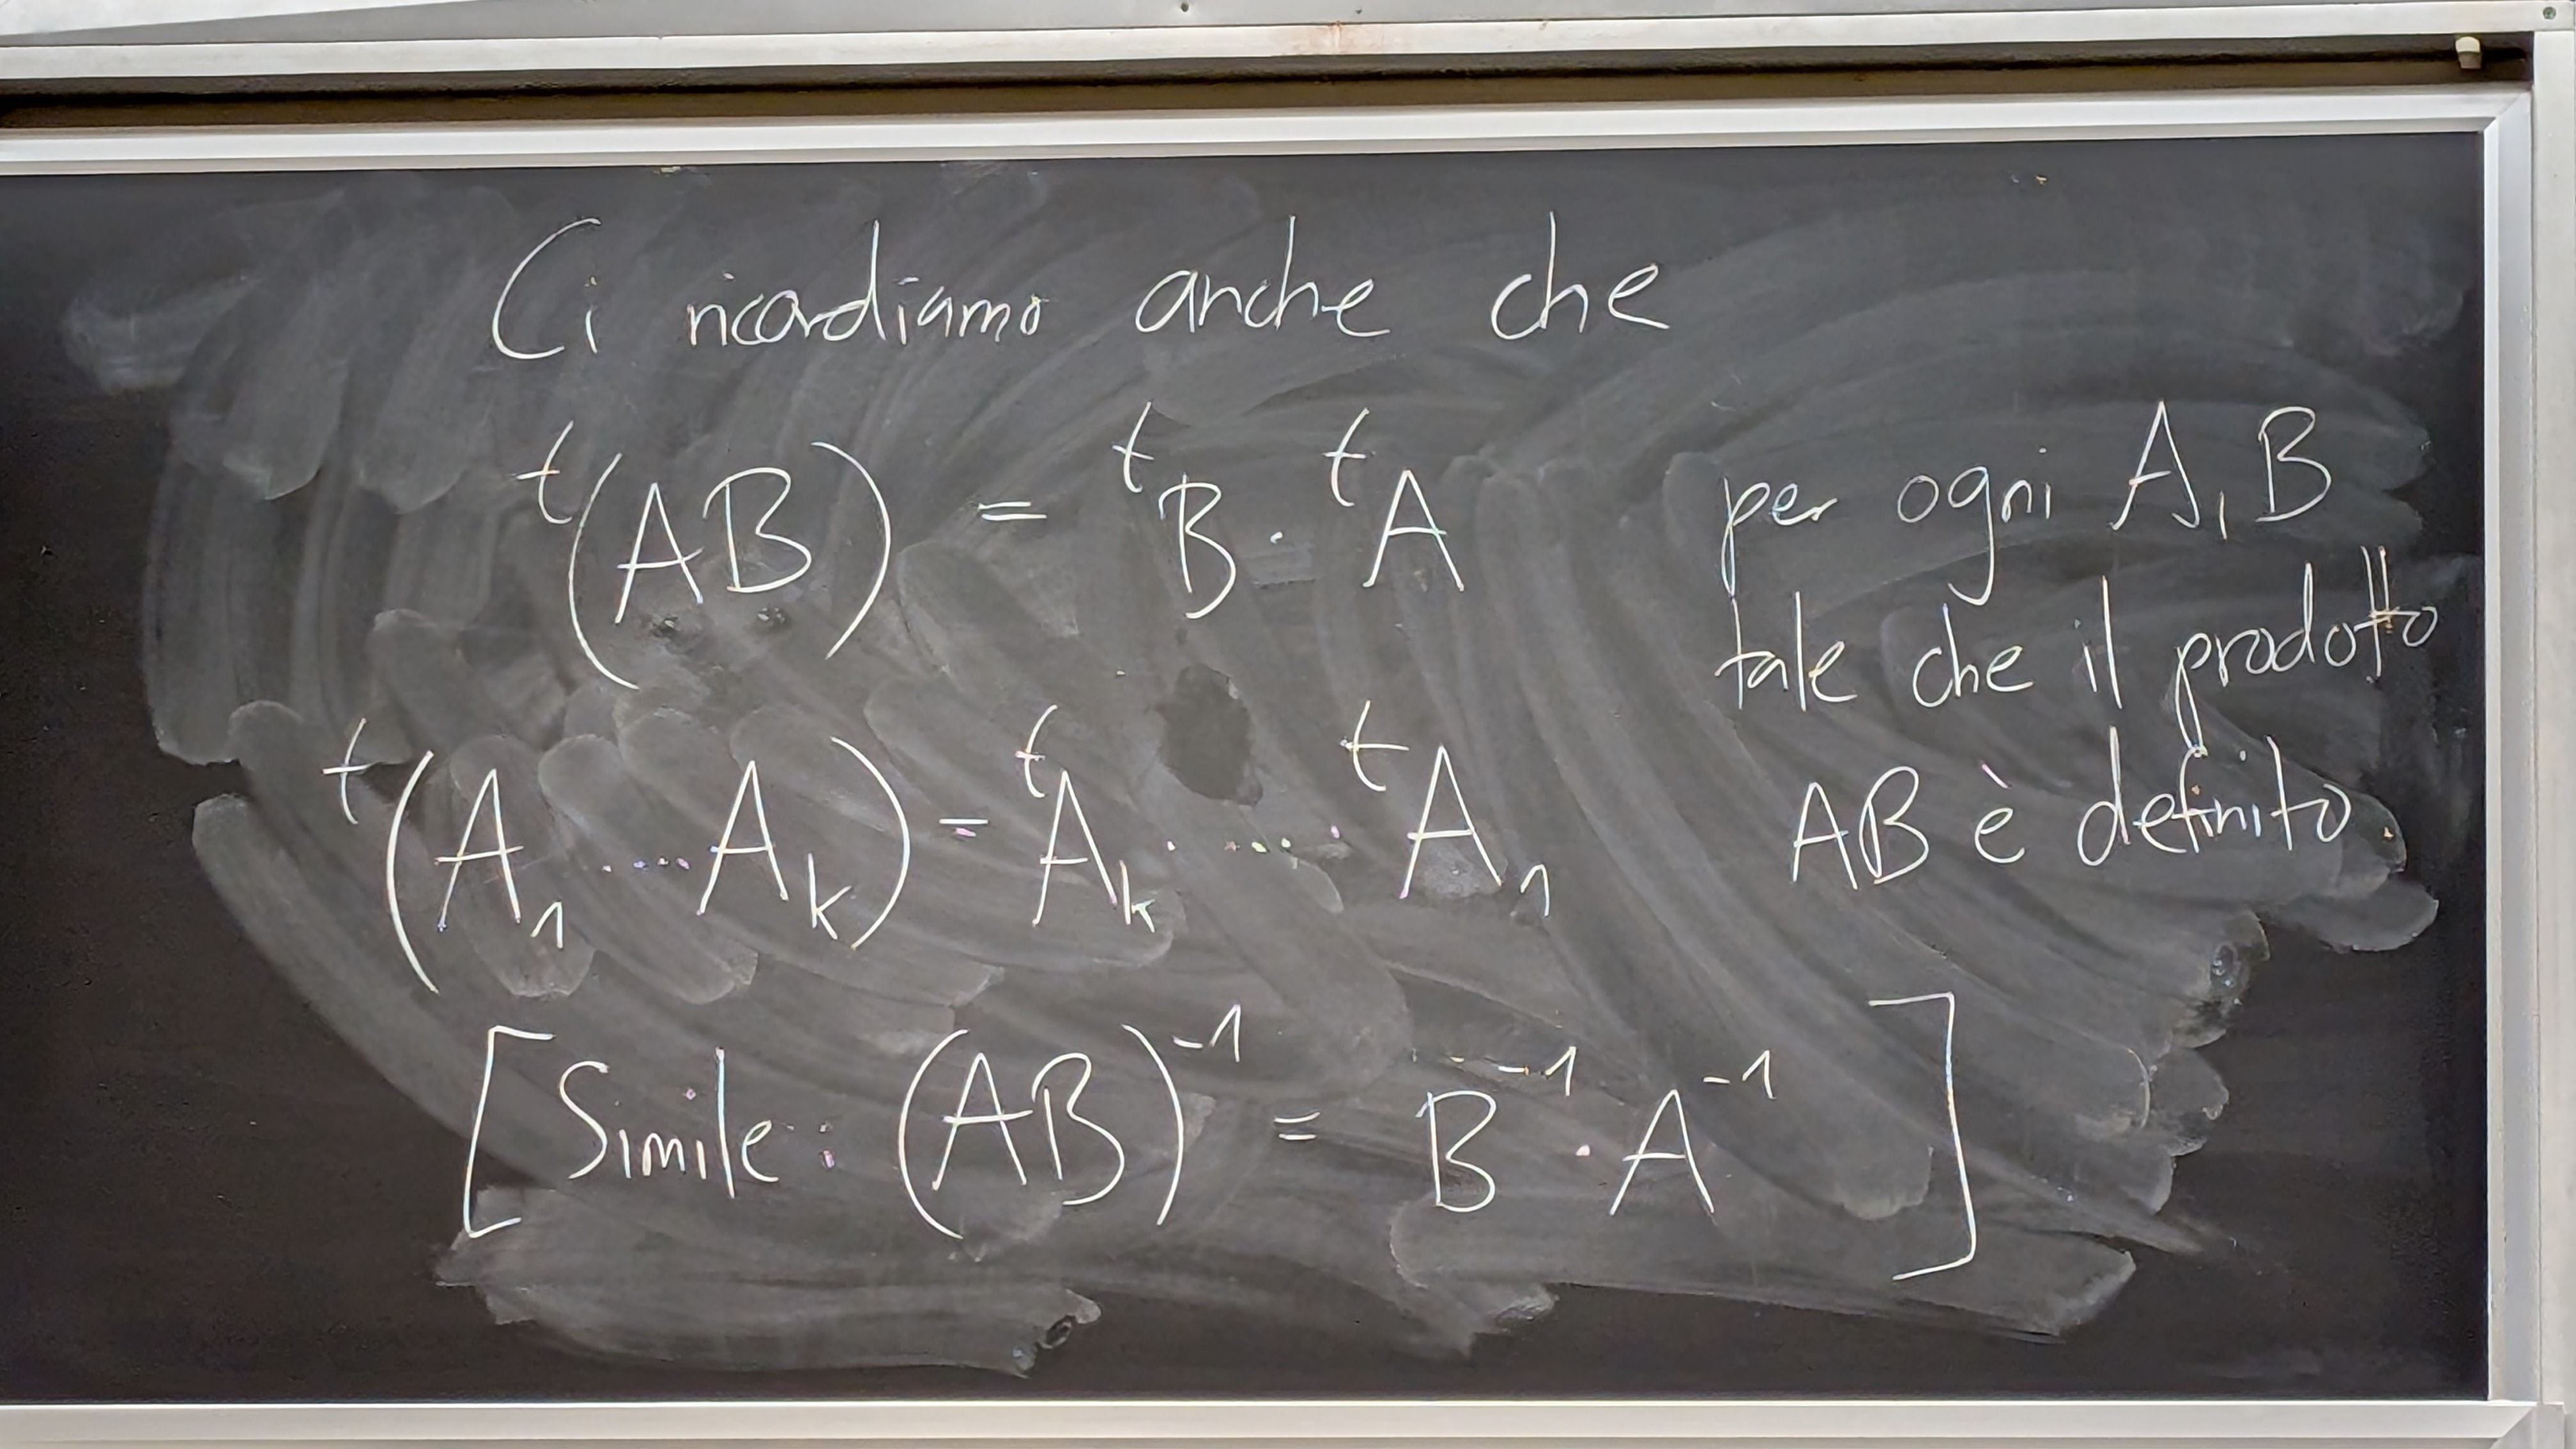 Ci ricordiamo anche che
ᵗ(AB) = ᵗB · ᵗA
per ogni A, B
tale che il prodotto
AB è definito
ᵗ(A₁ .... Aₖ) = ᵗAₖ · .... · ᵗA₁
[Simile: (AB)⁻¹ = B⁻¹ · A⁻¹]